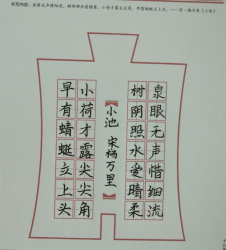 书写内容：泉眼无声惜细流，树阴照水爱晴柔。小荷才露尖尖角，早有蜻蜓立上头。——宋·杨万里《小池》
泉眼无声惜细流
树阴照水爱晴柔
【小池 宋杨万里】
小荷才露尖尖角
早有蜻蜓立上头